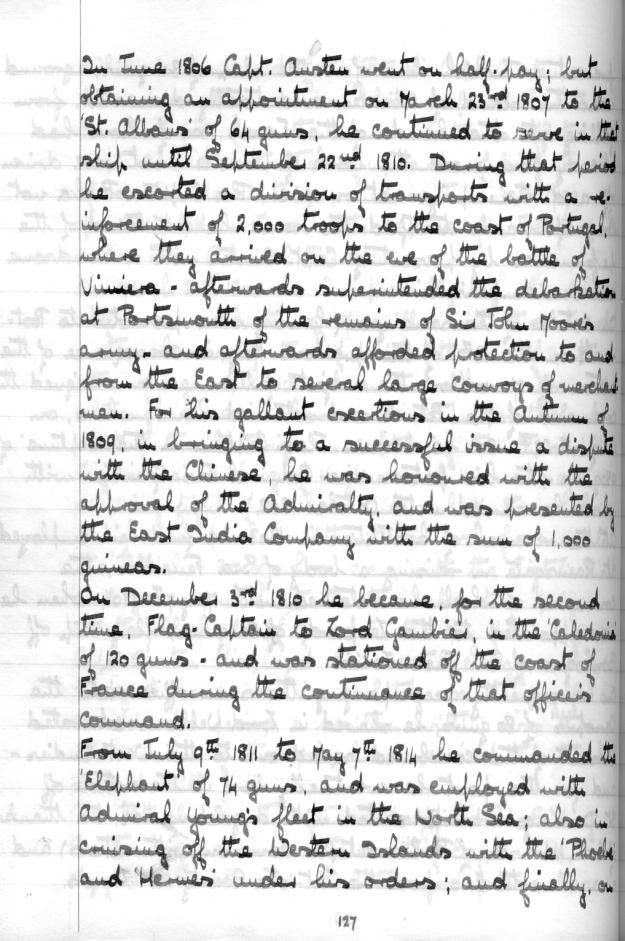 In June 1806 Capt. Austen went on half-pay; but
obtaining an appointment on March 23rd 1807 to the
'St. Albans' of 64 guns, he continued to serve in that
ship until September 22nd 1810. During that period
he escorted a division of transports with a re-
inforcement of 2,000 troops to the coast of Portugal,
where they arrived on the eve of the battle of
Vimiera - afterwards superintended the debarkation
at Portsmouth of the remains of Sir John Moore's
army - and afterwards afforded protection to and
from the East to several large convoys of merchant
men. For his gallant exertions in the Autumn of
1809, in bringing to a successful issue a dispute
with the Chinese, he was honoured with the
approval of the Admiralty, and was presented by
the East India Company with the sum of 1,000
guineas.
On December 3rd 1810 he became, for the second
time, Flag-Captain to Lord Gambier, in the 'Caledonia'
of 120 guns - and was stationed off the coast of
France during the continuance of that officer's
command.
From July 9th 1811 to May 7th 1814 he commanded the
'Elephant' of 74 guns, and was employed with
Admiral Young's fleet in the North Sea; also in
cruising off the Western Islands with the 'Phoebe'
and 'Hermes' under his orders; and finally, on
127